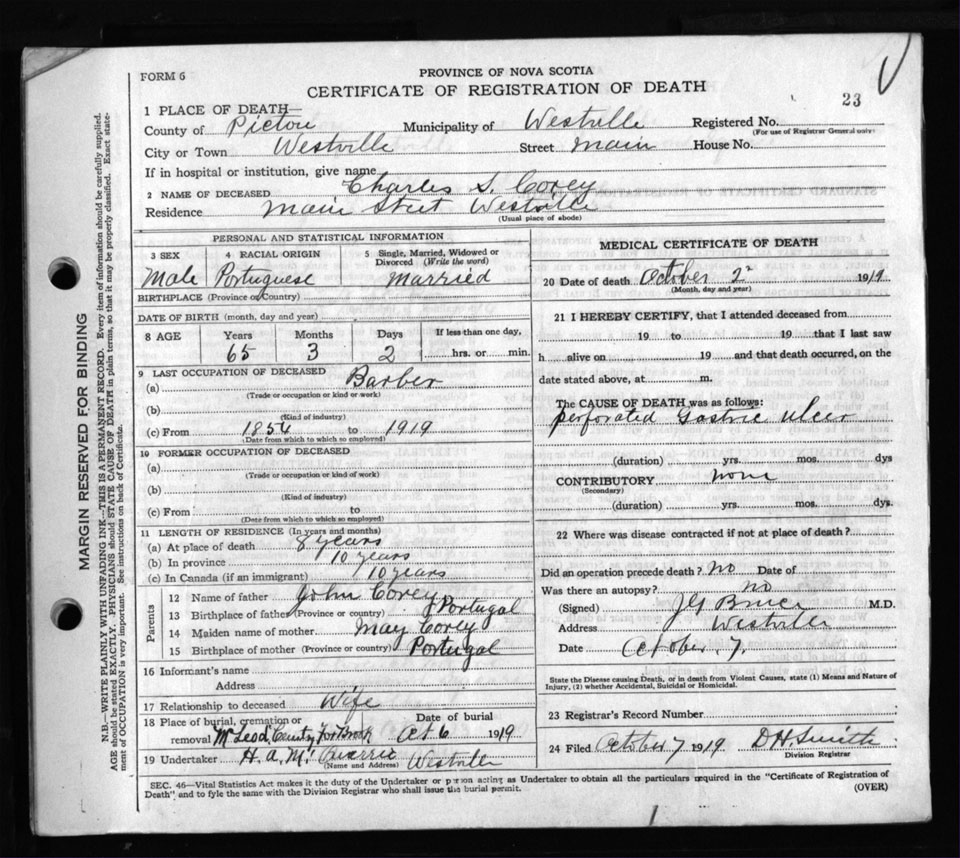 FORM 6
PROVINCE OF NOVA SCOTIA
CERTIFICATE OF REGISTRATION OF DEATH
23
1 PLACE OF DEATH—
County of Pictou Municipality of Westville Registered No.
(For use of Registrar General only)
City or Town Westville Street Main House No.
If in hospital or institution, give name
2 NAME OF DECEASED Charles S. Corey
Residence Main Street Westville
(Usual place of abode)
PERSONAL AND STATISTICAL INFORMATION
3 SEX 4 RACIAL ORIGIN 5 Single, Married, Widowed or Divorced (Write the word)
Male Portuguese Married
BIRTHPLACE (Province or Country)
DATE OF BIRTH (month, day and year)
8 AGE Years Months Days If less than one day,
65 3 2 hrs. or min.
9 LAST OCCUPATION OF DECEASED
(a) Barber
(Trade or occupation or kind of work)
(b)
(Kind of industry)
(c) From 1854 to 1919
(Date from which to which so employed)
10 FORMER OCCUPATION OF DECEASED
(a)
(Trade or occupation or kind of work)
(b)
(Kind of industry)
(c) From to
(Date from which to which so employed)
11 LENGTH OF RESIDENCE (In years and months)
(a) At place of death 8 years
(b) In province 10 years
(c) In Canada (if an immigrant) 10 years
Parents
12 Name of father John Corey
13 Birthplace of father (Province or country) Portugal
14 Maiden name of mother May Corey
15 Birthplace of mother (Province or country) Portugal
16 Informant's name
Address
17 Relationship to deceased Wife
18 Place of burial, cremation or removal McLeod Date of burial Oct 6 1919
19 Undertaker H. A. Mc Westville
(Name and Address)
MEDICAL CERTIFICATE OF DEATH
20 Date of death October 2 1919
(Month, day and year)
21 I HEREBY CERTIFY, that I attended deceased from
19 to 19 that I last saw
h alive on 19 and that death occurred, on the
date stated above, at m.
The CAUSE OF DEATH was as follows:
perforated Gastric Ulcer
(duration) yrs. mos. dys
CONTRIBUTORY none
(Secondary)
(duration) yrs. mos. dys.
22 Where was disease contracted if not at place of death?
Did an operation precede death? no Date of
Was there an autopsy? no
(Signed) M.D.
Address Westville
Date October 7.
State the Disease causing Death, or in death from Violent Causes, state (1) Means and Nature of
Injury, (2) whether Accidental, Suicidal or Homicidal.
23 Registrar's Record Number
24 Filed October 7 1919 D H Smith
Division Registrar
SEC. 46—Vital Statistics Act makes it the duty of the Undertaker or person acting as Undertaker to obtain all the particulars required in the "Certificate of Registration of
Death" and to fyle the same with the Division Registrar who shall issue the burial permit.
(OVER)
MARGIN RESERVED FOR BINDING
N.B.—WRITE PLAINLY WITH UNFADING INK—THIS IS A PERMANENT RECORD. Every item of information should be carefully supplied.
AGE should be stated EXACTLY. PHYSICIANS should STATE CAUSE OF DEATH in plain terms, so that it may be properly classified. Exact state-
ment of OCCUPATION is very important. See instructions on back of Certificate.